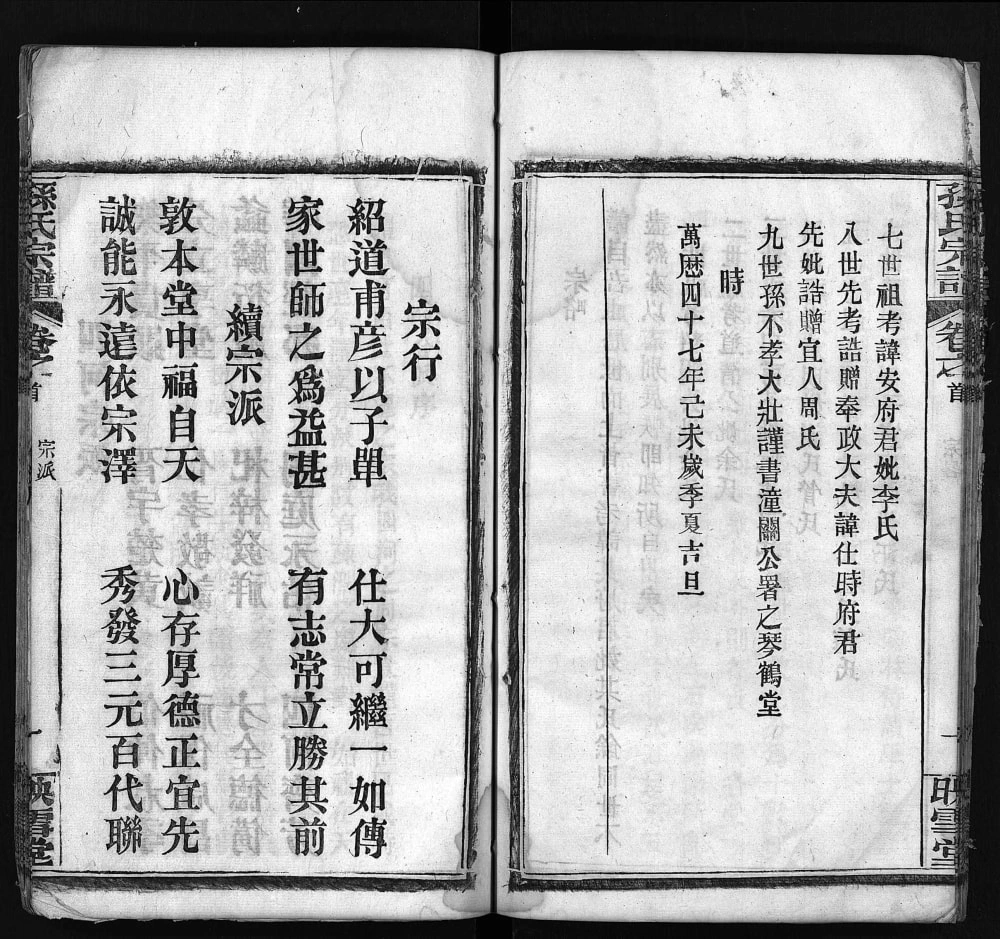 孫氏宗譜
卷之首
一
映雪堂
七世祖考諱安府君妣李氏
八世先考誥贈奉政大夫諱仕時府君
先妣誥贈宜人周氏
九世孫不孝大壯謹書潼關公署之琴鶴堂
時
萬歷四十七年己未歲季夏吉旦
宗行
紹道甫彥以子單 仕大可繼一如傳
家世師之爲益甚 有志常立勝其前
續宗派
敦本堂中福自天 心存厚德正宜先
誠能永遠依宗澤 秀發三元百代聯
孫氏宗譜
卷之首
宗派
一
映雪堂